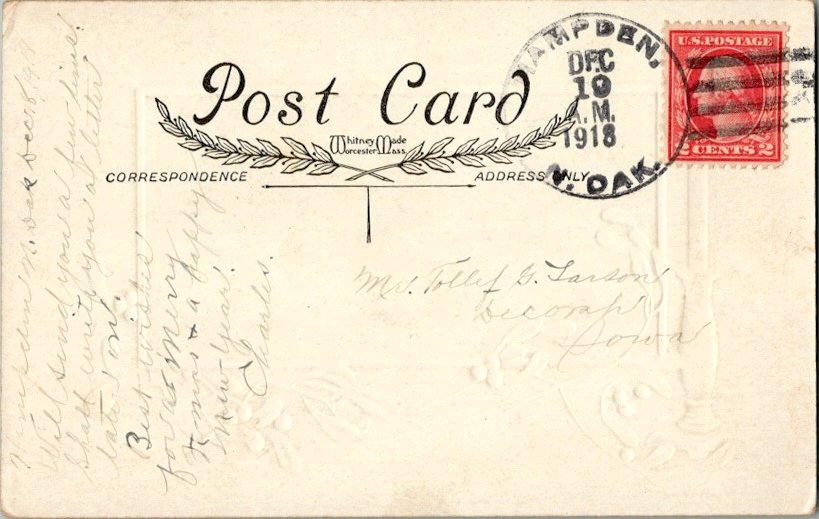 Post Card
Whitney Made
Worcester Mass.
CORRESPONDENCE
ADDRESS ONLY
HAMPDEN,
DEC
19
A.M.
1918
N. DAK.
U.S. POSTAGE
2 CENTS 2
Mr. Tollef G. Larson
Decorah
Iowa
Hampden N. Dak Dec
Will send you a few lines.
Shall write you a letter
later on.
Best wishes
for a Merry
Xmas & a happy
New-Year.
Charles.